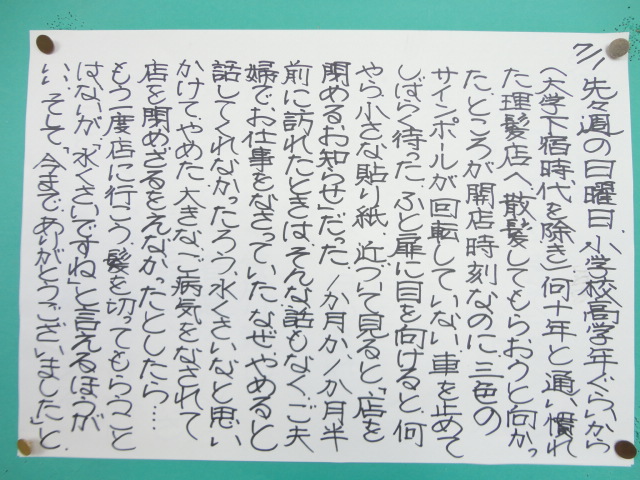 7/1 先々週の日曜日、小学校高学年ぐらいから
(大学下宿時代を除き)何十年と通い慣れ
た理髪店へ、散髪してもらおうと向かっ
た。ところが開店時刻なのに、三色の
サインポールが回転していない。車を止めて
しばらく待った。ふと扉に目を向けると、何
やら、小さな貼り紙。近づいて見ると、「店を
閉めるお知らせ」だった。1か月か、1か月半
前に訪れたときは、そんな話もなく、ご夫
婦でお仕事をなさっていた。なぜ、やめると
話してくれなかったろう、水くさいなと思い
かけて、やめた。大きなご病気をなされて
店を閉めざるをえなかったとしたら…
もう一度店に行こう。髪を切ってもらうこと
はないが、「水くさいですね」と言えるほうが
…。そして、「今までありがとうございました」と。